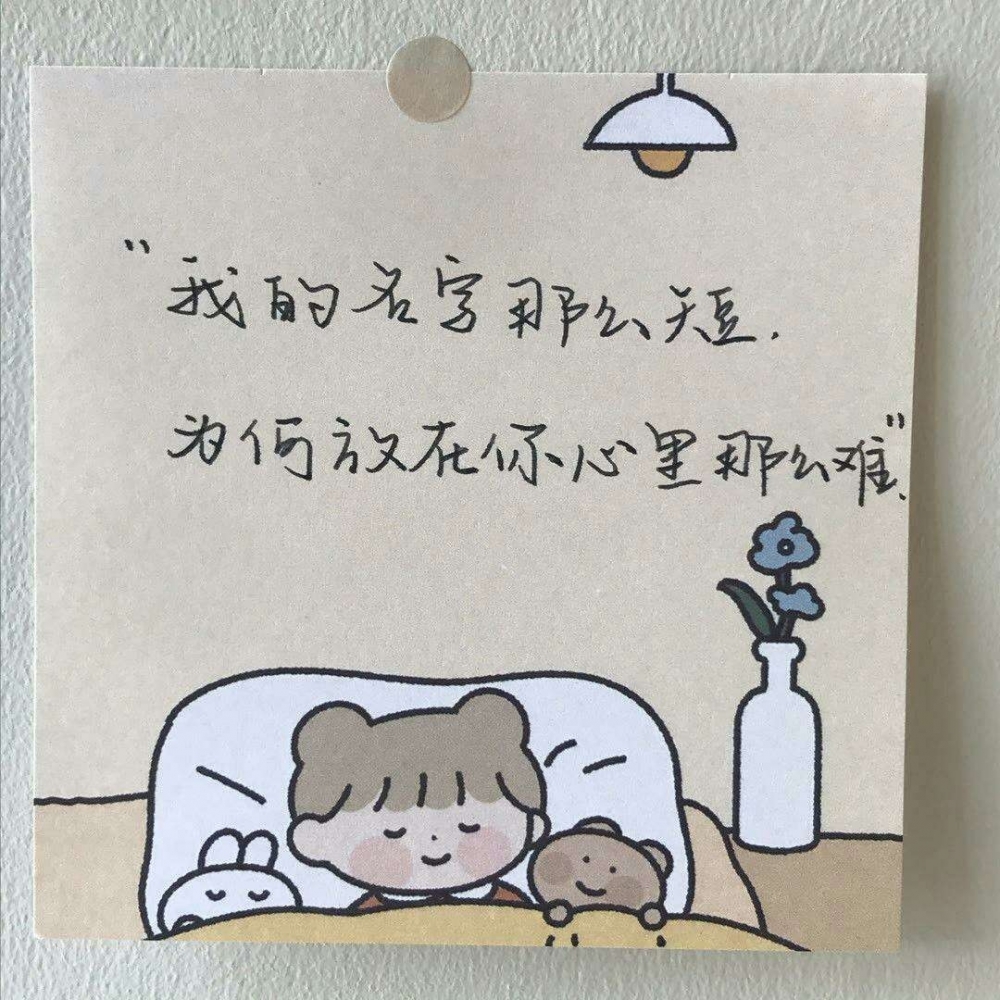 "我的名字那么短.
为何放在你心里那么难."